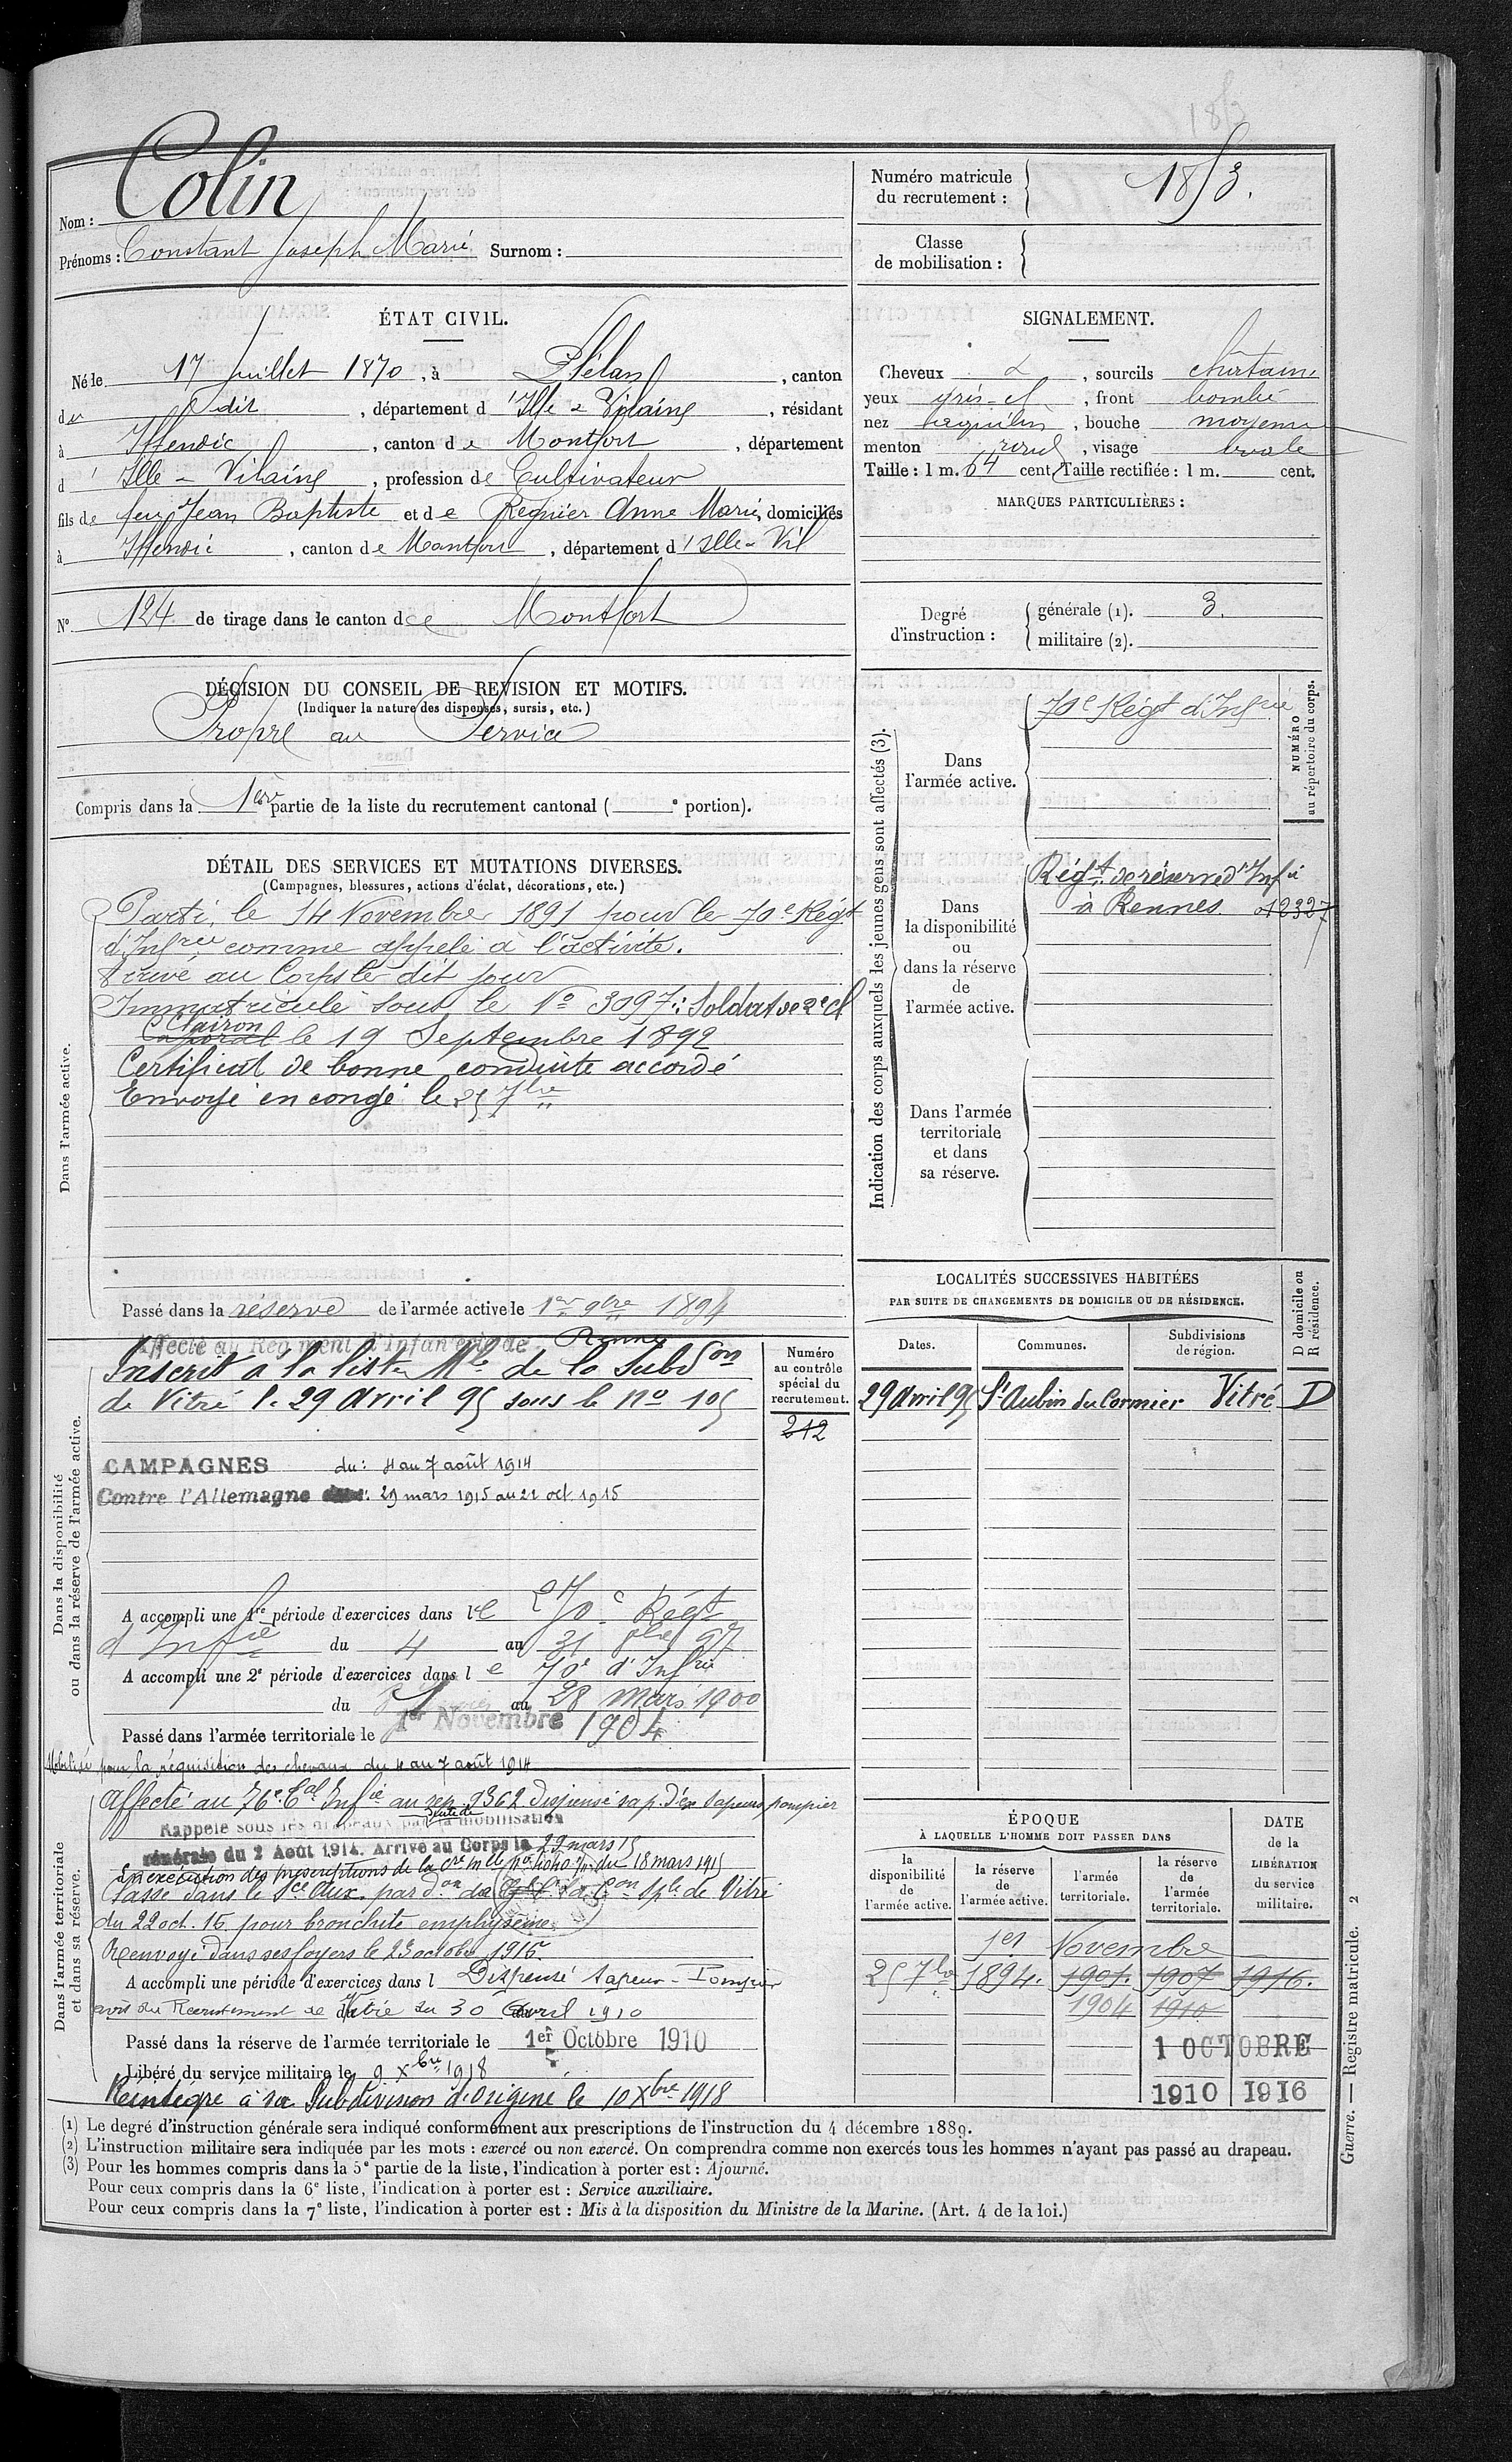 Nom : Colin
Prénoms : Constant Joseph Marie Surnom :
Numéro matricule du recrutement : 1853.
Classe de mobilisation :
ÉTAT CIVIL.
Né le 17 juillet 1870, à Plélan, canton
du dit, département d'Ille-&-Vilaine, résidant
à Iffendic, canton de Montfort, département
d'Ille-Vilaine, profession de Cultivateur
fils de feu Jean Baptiste et de Regnier Anne Marie, domiciliés
à Iffendic, canton de Montfort, département d'Ille-Vil
N° 124 de tirage dans le canton de Montfort
SIGNALEMENT.
Cheveux &, sourcils châtains
yeux gris-, front bombé
nez aquilin, bouche moyenne
menton rond, visage ovale
Taille : 1 m. 64 cent. Taille rectifiée : 1 m. cent.
MARQUES PARTICULIÈRES :
Degré d'instruction :
générale (1). 3.
militaire (2).
DÉCISION DU CONSEIL DE REVISION ET MOTIFS.
(Indiquer la nature des dispenses, sursis, etc.)
Propre au Service
Compris dans la 1ère partie de la liste du recrutement cantonal ( e portion).
DÉTAIL DES SERVICES ET MUTATIONS DIVERSES.
(Campagnes, blessures, actions d'éclat, décorations, etc.)
Dans l'armée active.
Parti le 14 Novembre 1891 pour le 70e Régt
d'Infrie comme appelé à l'activité.
Arrivé au Corps le dit jour
Immatriculé sous le No 3097: Soldat de 2e cl
Clairon
Caporal le 19 Septembre 1892
Certificat de bonne conduite accordé
Envoyé en congé le 25 7bre
Passé dans la réserve de l'armée active le 1er 9bre 1894
Indication des corps auxquels les jeunes gens sont affectés (3).
NUMÉRO au répertoire du corps.
Dans l'armée active.
70e Régt d'Infrie
Dans la disponibilité ou dans la réserve de l'armée active.
Régt de réserve d'Infie
à Rennes. 012327
Dans l'armée territoriale et dans sa réserve.
Dans la disponibilité ou dans la réserve de l'armée active.
Affecté au Régiment d'Infanterie de Rennes
Inscrit à la liste Mle de la Subdson
de Vitré le 29 Avril 95 sous le No 105
Numéro au contrôle spécial du recrutement.
212
CAMPAGNES du : 4 au 7 août 1914
Contre l'Allemagne 29 mars 1915 au 22 oct. 1915
A accompli une 1re période d'exercices dans le 270e Régt
d'Infie du 4 au 31 8bre 97
A accompli une 2e période d'exercices dans le 70e d'Infrie
du 1 au 28 mars 1900
Passé dans l'armée territoriale le 1er Novembre 1904
Mobilisé pour la réquisition des chevaux du 4 au 7 août 1914
Dans l'armée territoriale et dans sa réserve.
Affecté au 76e tal Infie au rep. 9362. Dispensé sap. d'ex Sapeurs pompier
Rappelé sous les drapeaux par la mobilisation
générale du 2 Août 1914. Arrivé au Corps le 29 mars 15
En exécution des prescriptions de la Cre mlle du 18 mars 1915
Passé dans le Sce Aux. par don de la Con Sple de Vitré
du 22 oct. 15 pour bronchite emphysème
Renvoyé dans ses foyers le 23 octobre 1915
A accompli une période d'exercices dans l Dispensé Sapeur-Pompier
avis du Recrutement de Vitré du 30 Avril 1910
Passé dans la réserve de l'armée territoriale le 1er Octobre 1910
Libéré du service militaire le 9 Xbre 1918
Réintégré à sa Subdivision d'origine le 10 Xbre 1918
LOCALITÉS SUCCESSIVES HABITÉES
PAR SUITE DE CHANGEMENTS DE DOMICILE OU DE RÉSIDENCE.
Dates. Communes. Subdivisions de région. D domicile ou R résidence.
29 Avril 95 St Aubin du Cormier Vitré D
ÉPOQUE
À LAQUELLE L'HOMME DOIT PASSER DANS
la disponibilité de l'armée active.
la réserve de l'armée active.
l'armée territoriale.
la réserve de l'armée territoriale.
DATE de la LIBÉRATION du service militaire.
1er Novembre
25 7bre 1894. 1901. 1907 1916.
1904 1910
1 OCTOBRE
1910 1916
(1) Le degré d'instruction générale sera indiqué conformément aux prescriptions de l'instruction du 4 décembre 1889.
(2) L'instruction militaire sera indiquée par les mots : exercé ou non exercé. On comprendra comme non exercés tous les hommes n'ayant pas passé au drapeau.
(3) Pour les hommes compris dans la 5e partie de la liste, l'indication à porter est : Ajourné.
Pour ceux compris dans la 6e liste, l'indication à porter est : Service auxiliaire.
Pour ceux compris dans la 7e liste, l'indication à porter est : Mis à la disposition du Ministre de la Marine. (Art. 4 de la loi.)
Guerre. — Registre matricule. 2